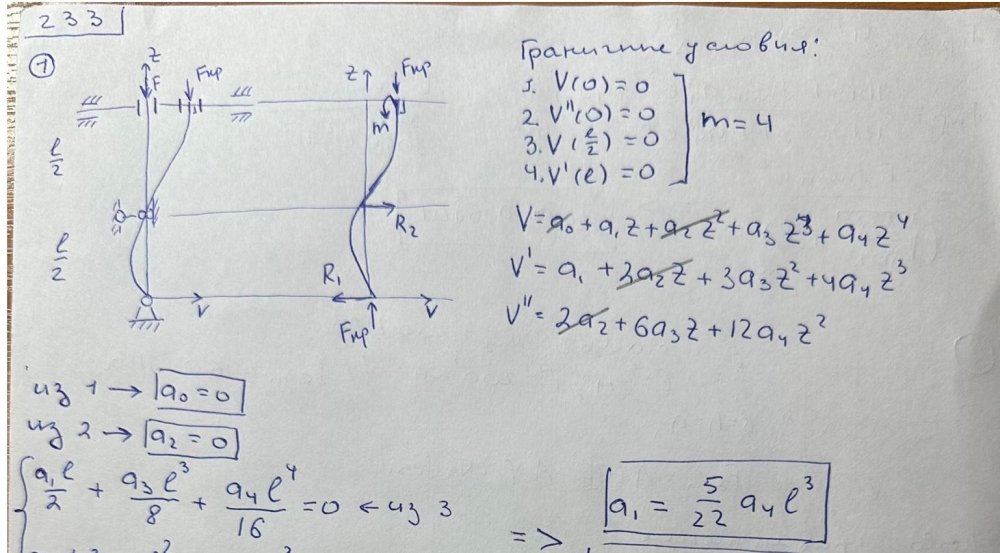 233
①
z
F
Fкр
l/2
l/2
V
z
Fкр
m
R₂
R₁
Fкр
V
Граничные условия:
1. V(0)=0
2. V''(0)=0
3. V(l/2)=0
4. V'(l)=0
m=4
V=a₀+a₁z+a₂z²+a₃z³+a₄z⁴
V'=a₁+3a₂z+3a₃z²+4a₄z³
V''=2a₂+6a₃z+12a₄z²
из 1 → a₀=0
из 2 → a₂=0
a₁l/2 + a₃l³/8 + a₄l⁴/16 =0 ← из 3
=> a₁ = 5/22 a₄l³